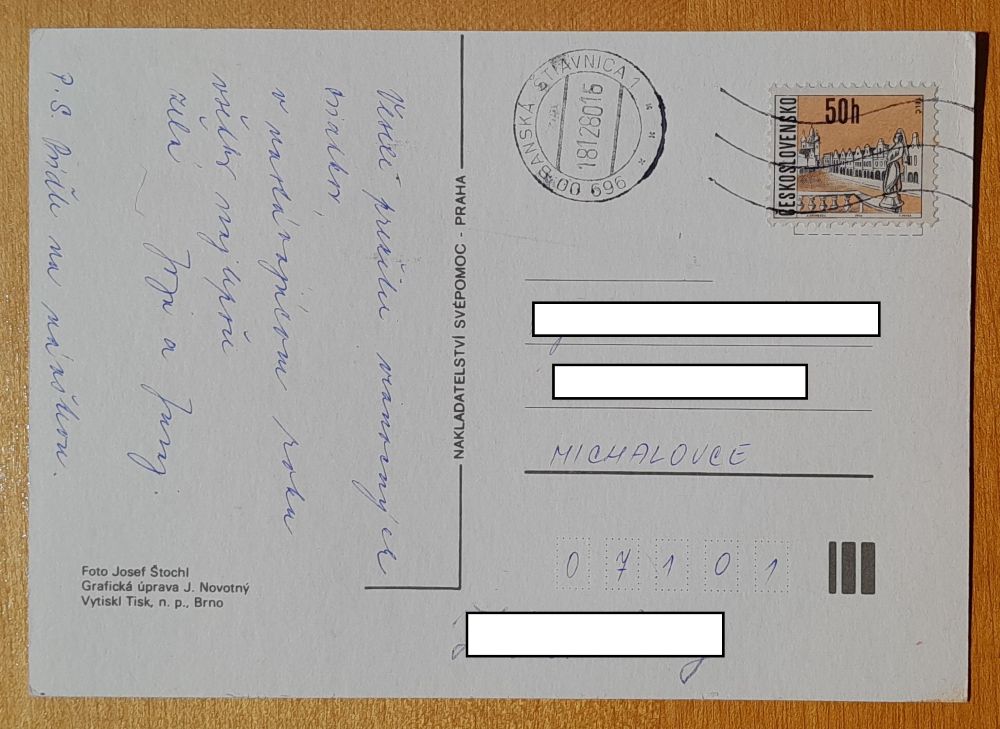 Veselé prežitie vianočných
sviatkov,
v nastávajúcom roku
všetko najlepšie
želá
a Juraj.
P.S. Príďte na návštevu.
Foto Josef Štochl
Grafická úprava J. Novotný
Vytiskl Tisk, n. p., Brno
NAKLADATELSTVÍ SVÉPOMOC - PRAHA
BANSKÁ ŠTIAVNICA 1
18128016
969 00
ČESKOSLOVENSKO
50h
MICHALOVCE
07101